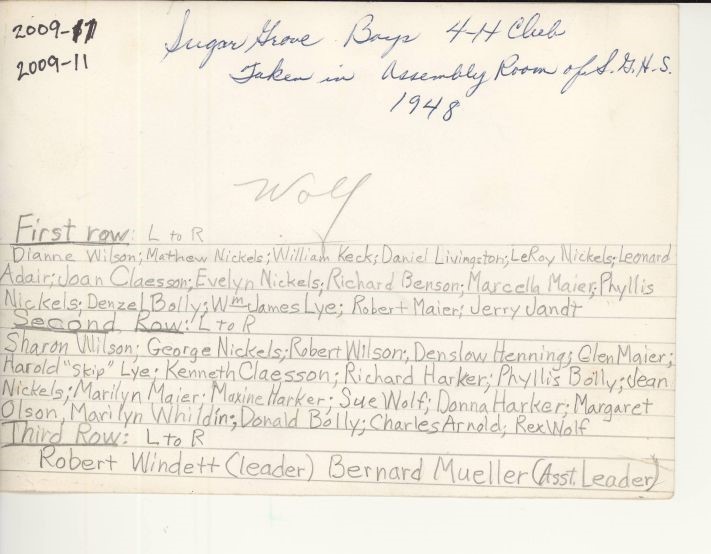 2009-11
2009-11
Sugar Grove Boys 4-H Club
Taken in Assembly Room of S.G.H.S.
1948
Wolf
First row: L to R
Dianne Wilson; Mathew Nickels; William Keck; Daniel Livingston; LeRoy Nickels; Leonard
Adair; Joan Claesson; Evelyn Nickels; Richard Benson; Marcella Maier; Phyllis
Nickels; Denzel Bolly; Wm James Lye; Robert Maier; Jerry Jandt
Second Row: L to R
Sharon Wilson; George Nickels; Robert Wilson; Denslow Henning; Glen Maier;
Harold "Skip" Lye; Kenneth Claesson; Richard Harker; Phyllis Bolly; Jean
Nickels; Marilyn Maier; Maxine Harker; Sue Wolf; Donna Harker; Margaret
Olson, Marilyn Whildin; Donald Bolly; Charles Arnold; Rex Wolf
Third Row: L to R
Robert Windett (leader) Bernard Mueller (Asst. Leader)